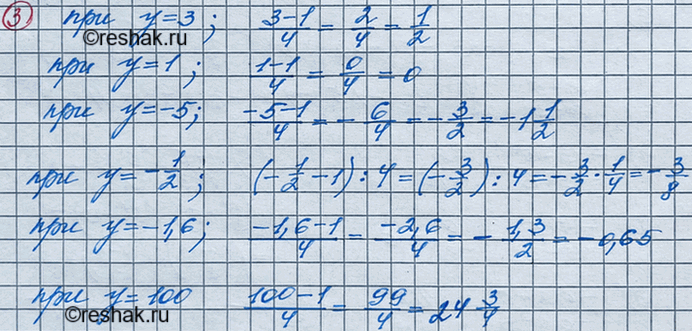 ③ при y=3; (3-1)/4 = 2/4 = 1/2
©reshak.ru
при y=1; (1-1)/4 = 0/4 = 0
при y=-5; (-5-1)/4 = -6/4 = -3/2 = -1 1/2
при y=-1/2; (-1/2-1):4 = (-3/2):4 = -3/2·1/4 = -3/8
при y=-1,6; (-1,6-1)/4 = (-2,6)/4 = -1,3/2 = -0,65
при y=100 (100-1)/4 = 99/4 = 24 3/4
©reshak.ru